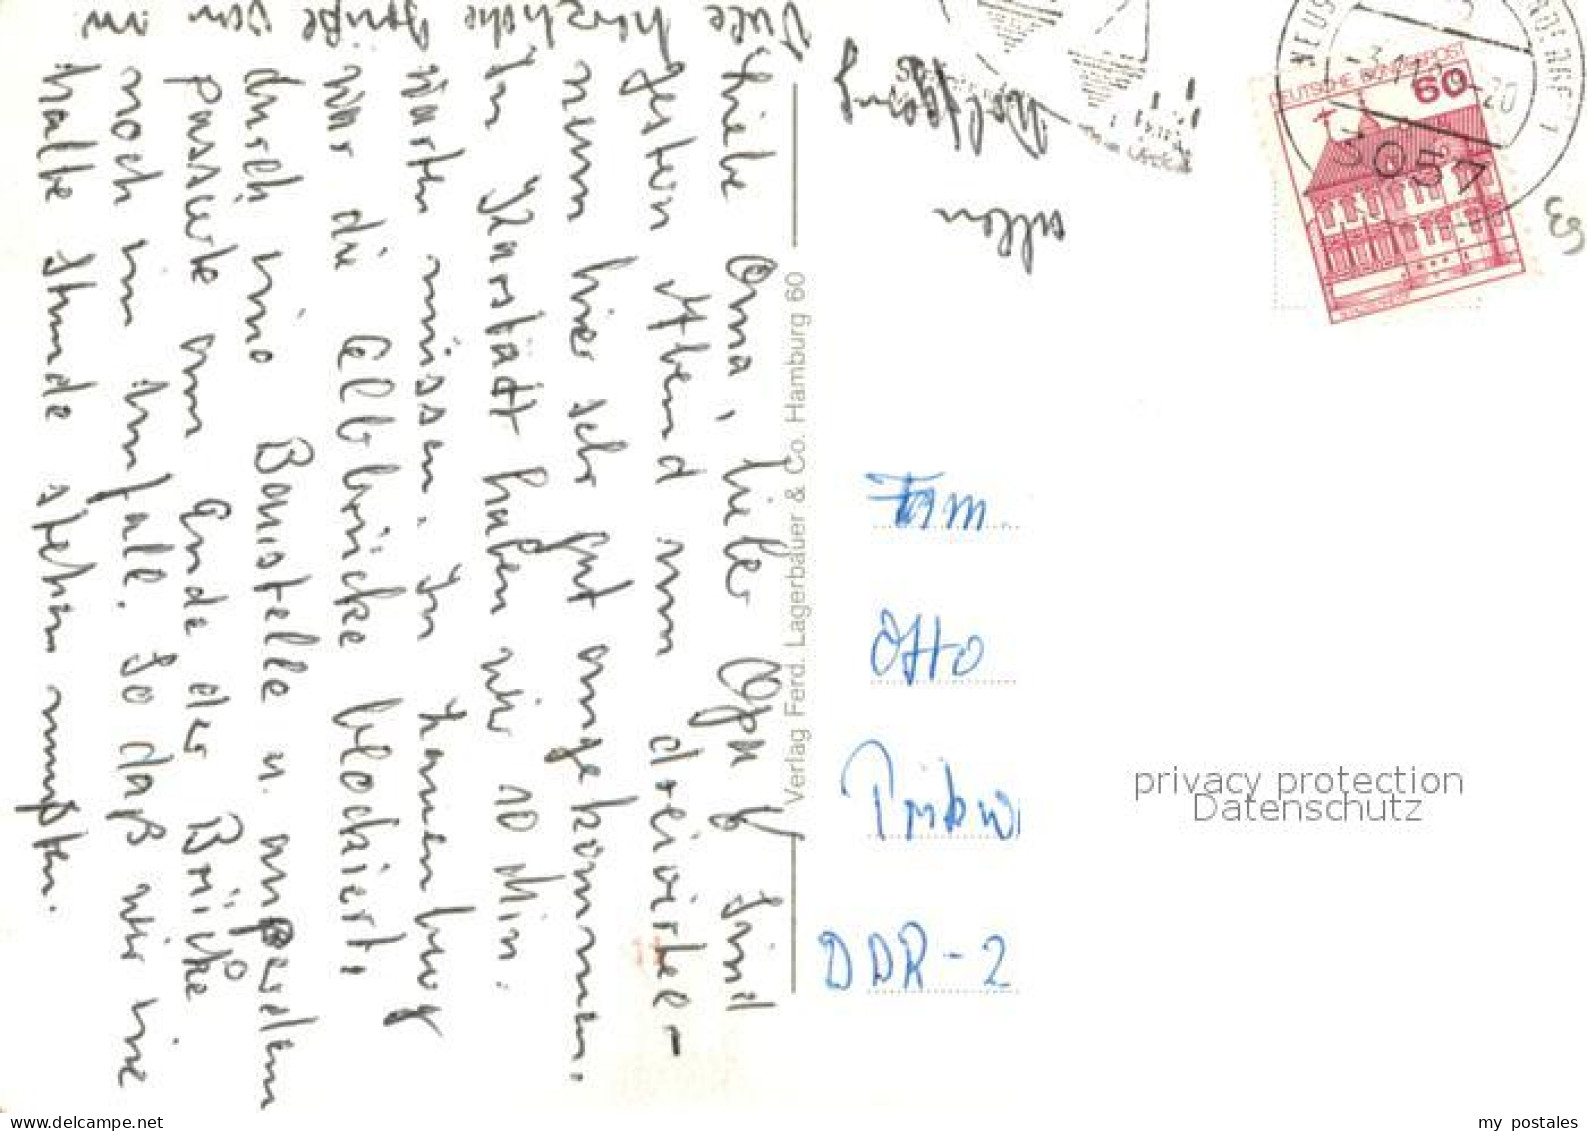 Liebe Oma, lieber Opa! Sind
gestern Abend um dreiviertel-
neun hier sehr gut angekommen.
In Karstädt haben wir 10 Min.
warten müssen. In Lauenburg
war die Elbbrücke blockiert,
durch eine Baustelle u. außerdem
passierte am Ende der Brücke
noch ein Unfall. So daß wir eine
halbe Stunde stehen mußten.
Viele herzliche Grüße von
Wolfgang
allen
Verlag Ferd. Lagerbauer & Co. Hamburg 60
DEUTSCHE BUNDESPOST
60
3057
Fam.
Otto
DDR-2
privacy protection
Datenschutz
www.delcampe.net
my postales